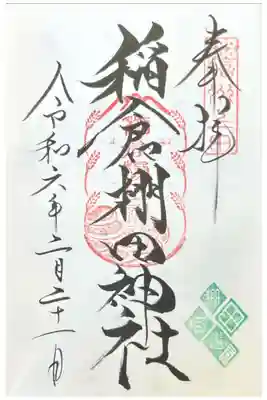 奉拝
稲倉棚田神社
令和六年二月二十一日